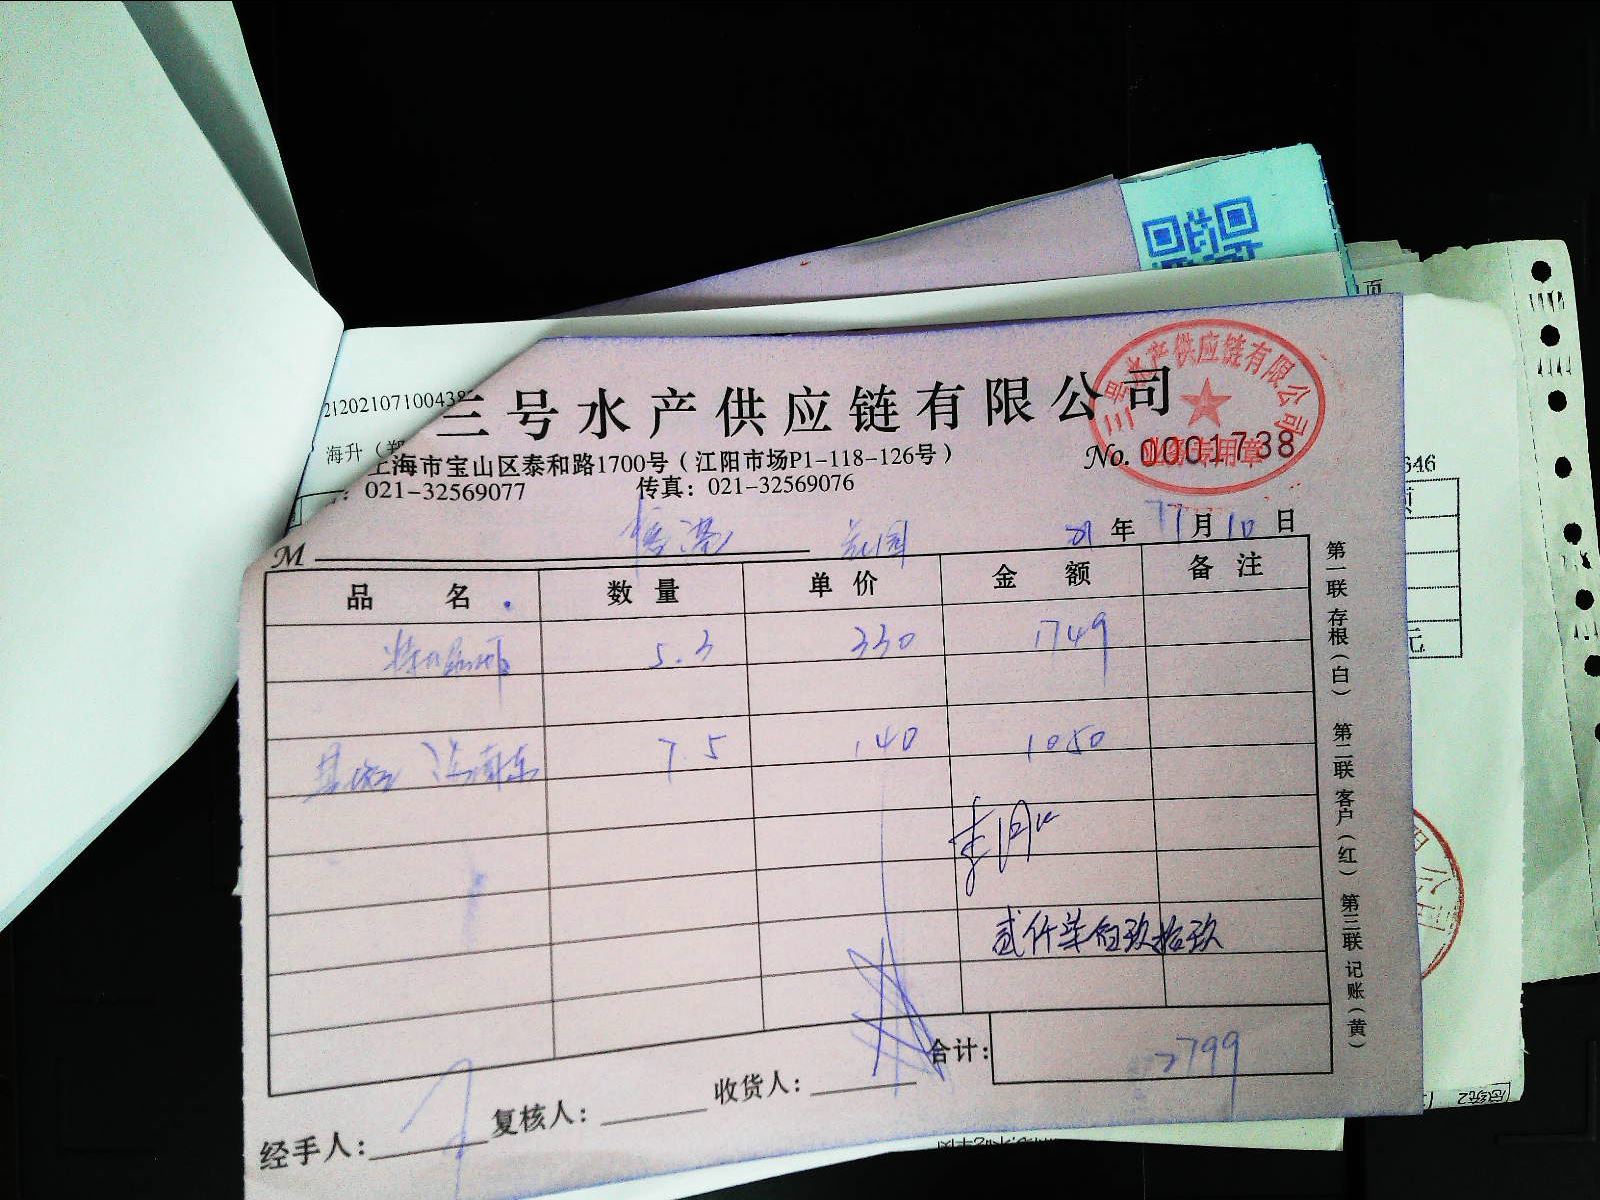 页
21202107100438
三号水产供应链有限公司
三号水产供应链有限公司
业务专用章
海升（郑
上海市宝山区泰和路1700号（江阳市场P1-118-126号）
No. 0001738
646
：021-32569077 传真：021-32569076
M 花园 21年 月10日
品名 数量 单价 金额 备注
5.3 330 1749
7.5 140 1050
贰仟柒佰玖拾玖
合计： 2799
经手人： 复核人： 收货人：
第一联 存根（白） 第二联 客户（红） 第三联 记账（黄）
元
公司